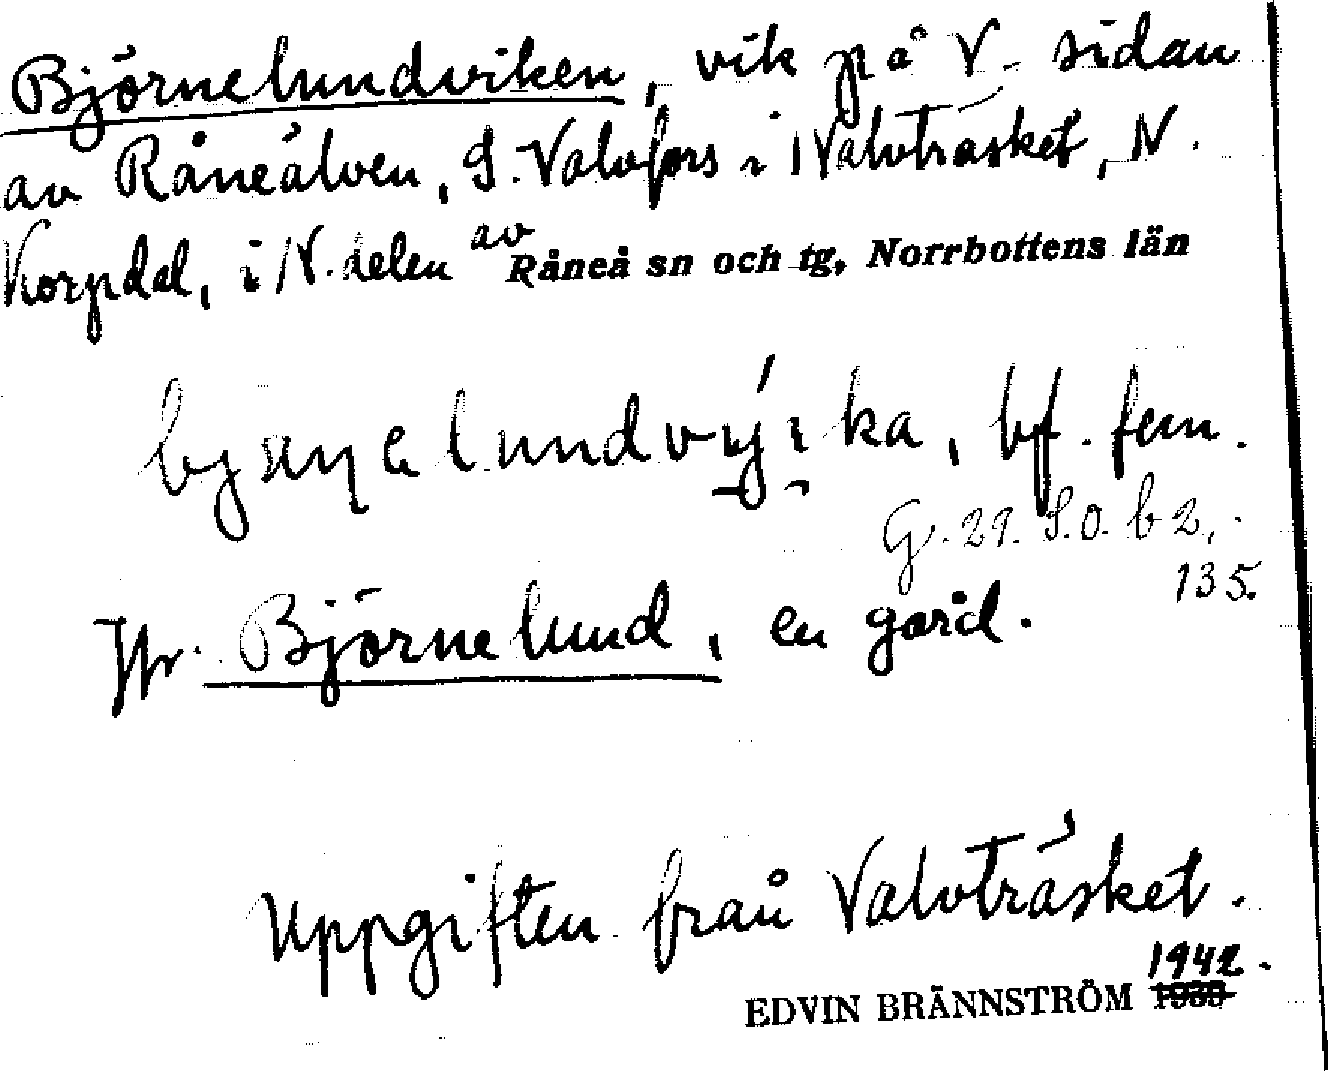 Björnelundviken, vik på V. sidan
av Råneälven, S. Valvfors i Valvträsket, N.
Korpdel, i N. delen av Råneå sn och tg, Norrbottens län
bf. fem.
G. 29. S.O. b 2,
135.
Jfr. Björnelund, en gård.
Uppgiften från Valvträsket.
1942.
EDVIN BRÄNNSTRÖM 1939